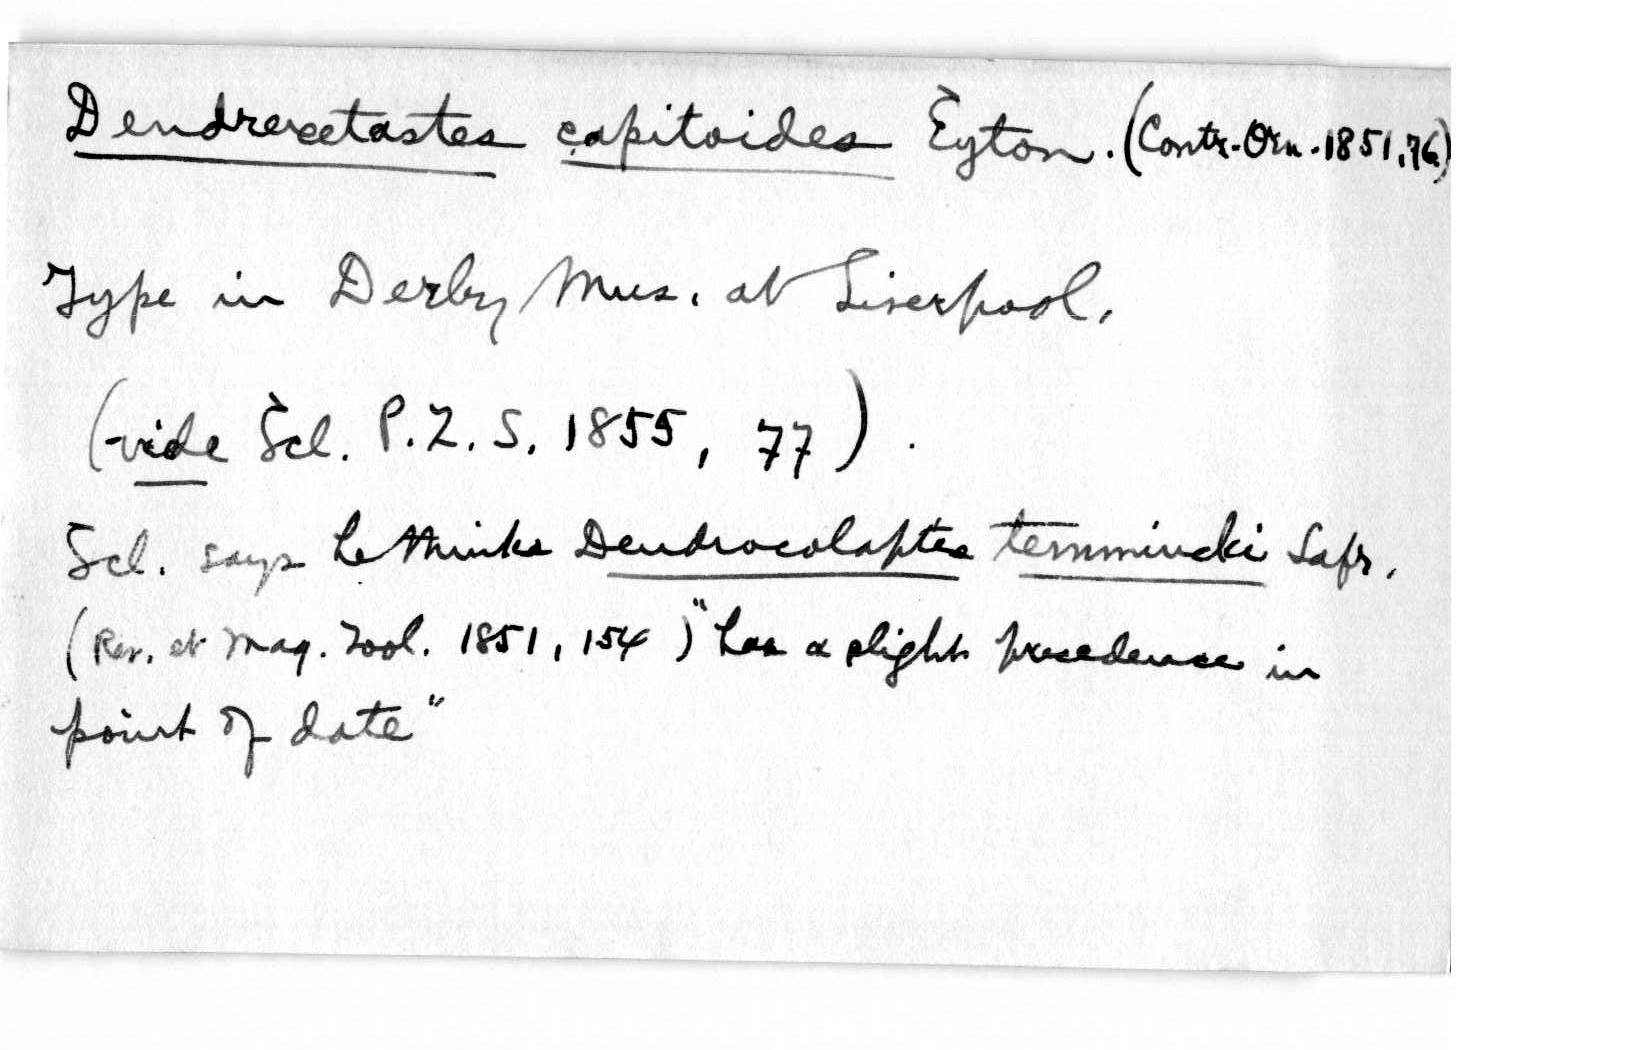 Dendrexetastes capitoides Eyton. (Contr. Orn. 1851, 76)
Type in Derby Mus. at Liverpool.
(vide Scl. P.Z.S. 1855, 77).
Scl. says he thinks Dendrocolaptes temmincki Lafr.
(Rev. et Mag. Zool. 1851, 154) "has a slight precedence in
point of date"